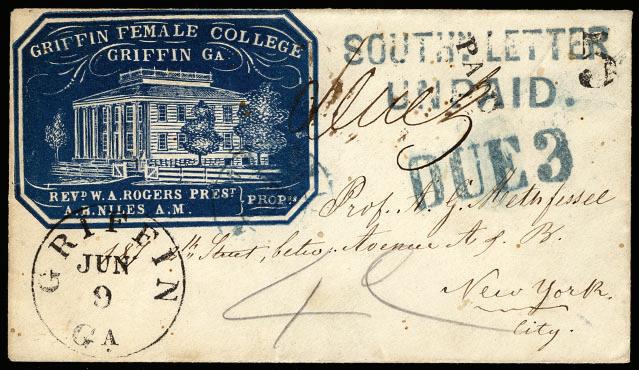 GRIFFIN FEMALE COLLEGE
GRIFFIN GA.
REVD W. A. ROGERS PREST
A. B. NILES A. M.
PROPRS
SOUTHN LETTER
UNPAID.
PAID
Due 3
DUE 3
GRIFFIN
JUN
9
GA
Prof. A. G. Methfessel
Street, betw. Avenue A & B.
New York.
City.